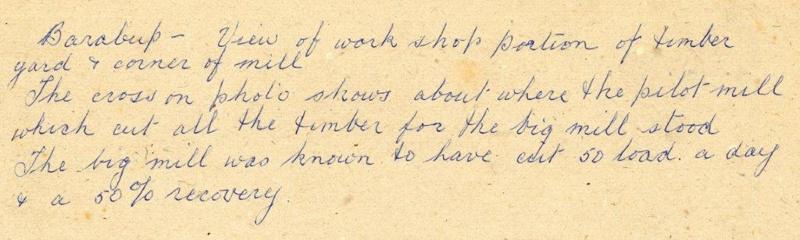 Barabup - View of work shop portion of timber
yard & corner of mill
The cross on photo shows about where the pilot mill
which cut all the timber for the big mill stood
The big mill was known to have cut 50 load. a day
& a 50% recovery.